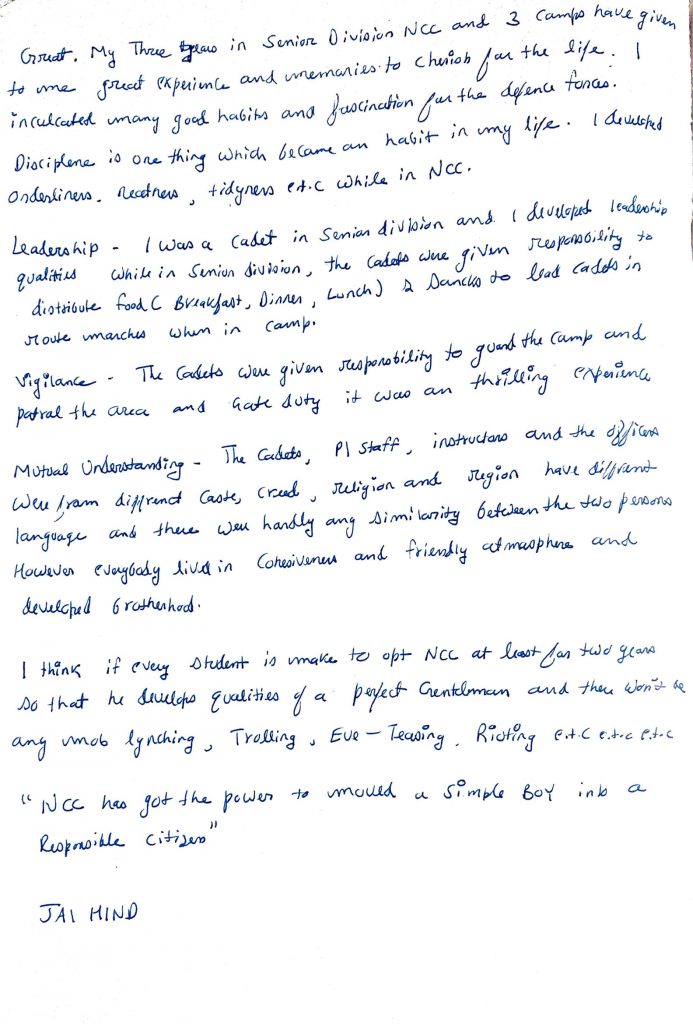 Great. My Three years in Senior Division NCC and 3 Camps have given
to me great experience and memories to cherish for the life. I
inculcated many good habits and fascination for the defence forces.
Discipline is one thing which became an habit in my life. I developed
orderliness, neatness, tidyness e.t.c while in NCC.
Leadership - I was a Cadet in Senior division and I developed leadership
qualities while in Senior division, the Cadets were given responsibility to
distribute food ( Breakfast, Dinner, Lunch) & to lead Cadets in
route marches when in camp.
Vigilance - The Cadets were given responsibility to guard the camp and
patral the area and Gate duty it was an thrilling experience
Mutual Understanding - The Cadets, PI Staff, instructors and the officers
were from diffrenct Caste, creed, religion and region have diffrent
language and there were hardly any similarity between the two persons
However everybody lived in Cohesiveness and friendly atmosphere and
developed brotherhood.
I think if every student is make to opt NCC at least for two years
so that he develops qualities of a perfect Gentelman and there won't be
any mob lynching, Trolling, Eve-Teasing, Rioting e.t.c e.t.c e.t.c
"NCC has got the power to mould a simple Boy into a
Responsible Citizen"
JAI HIND